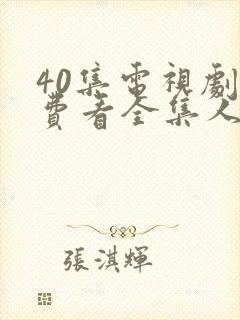 40集電視劇
費看全集人
張淇輝